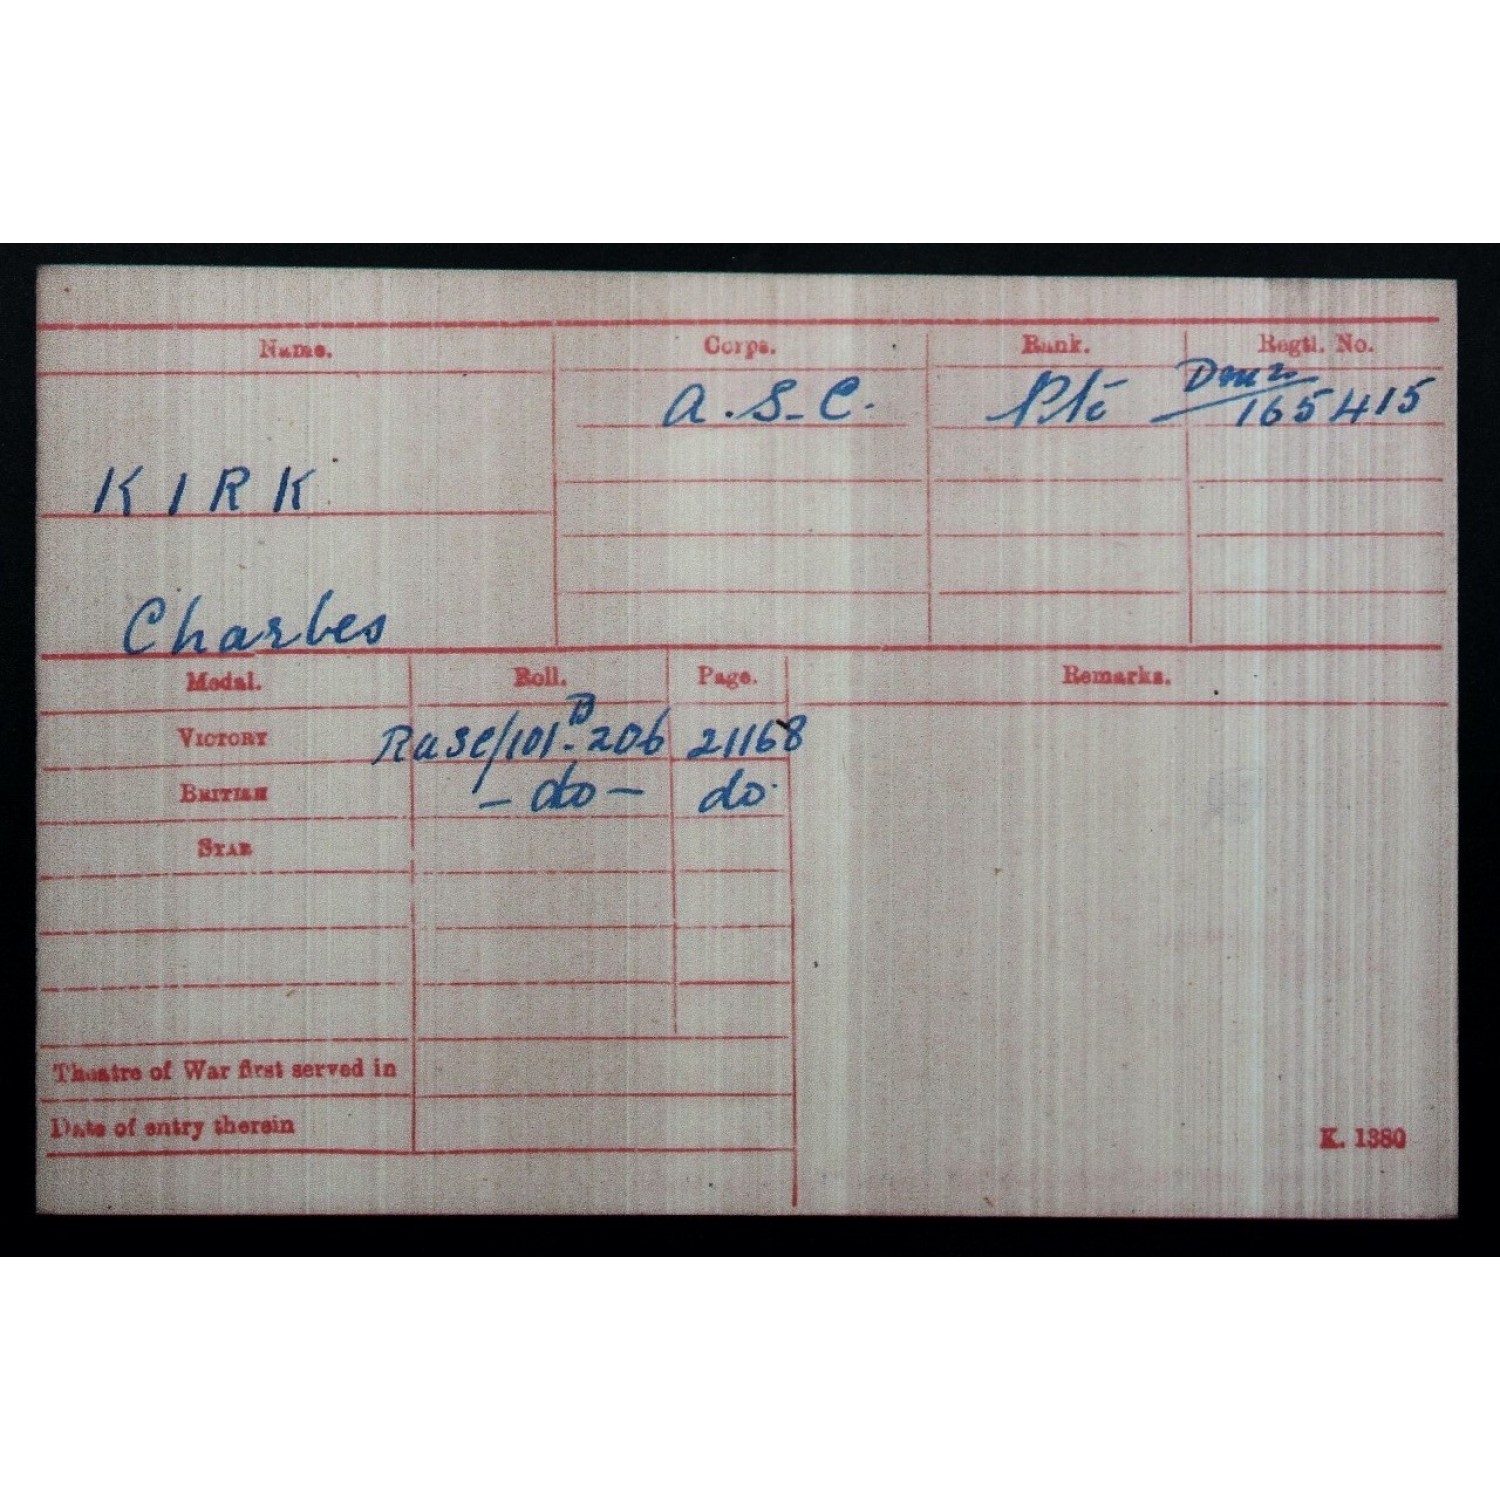 Name. Corps. Rank. Regtl. No.
A.S.C. Pte DM2 165415
KIRK
Charles
Medal. Roll. Page. Remarks.
VICTORY RASC/101 B-206 21168
BRITISH -do- do.
STAR
Theatre of War first served in
Date of entry therein
K. 1380